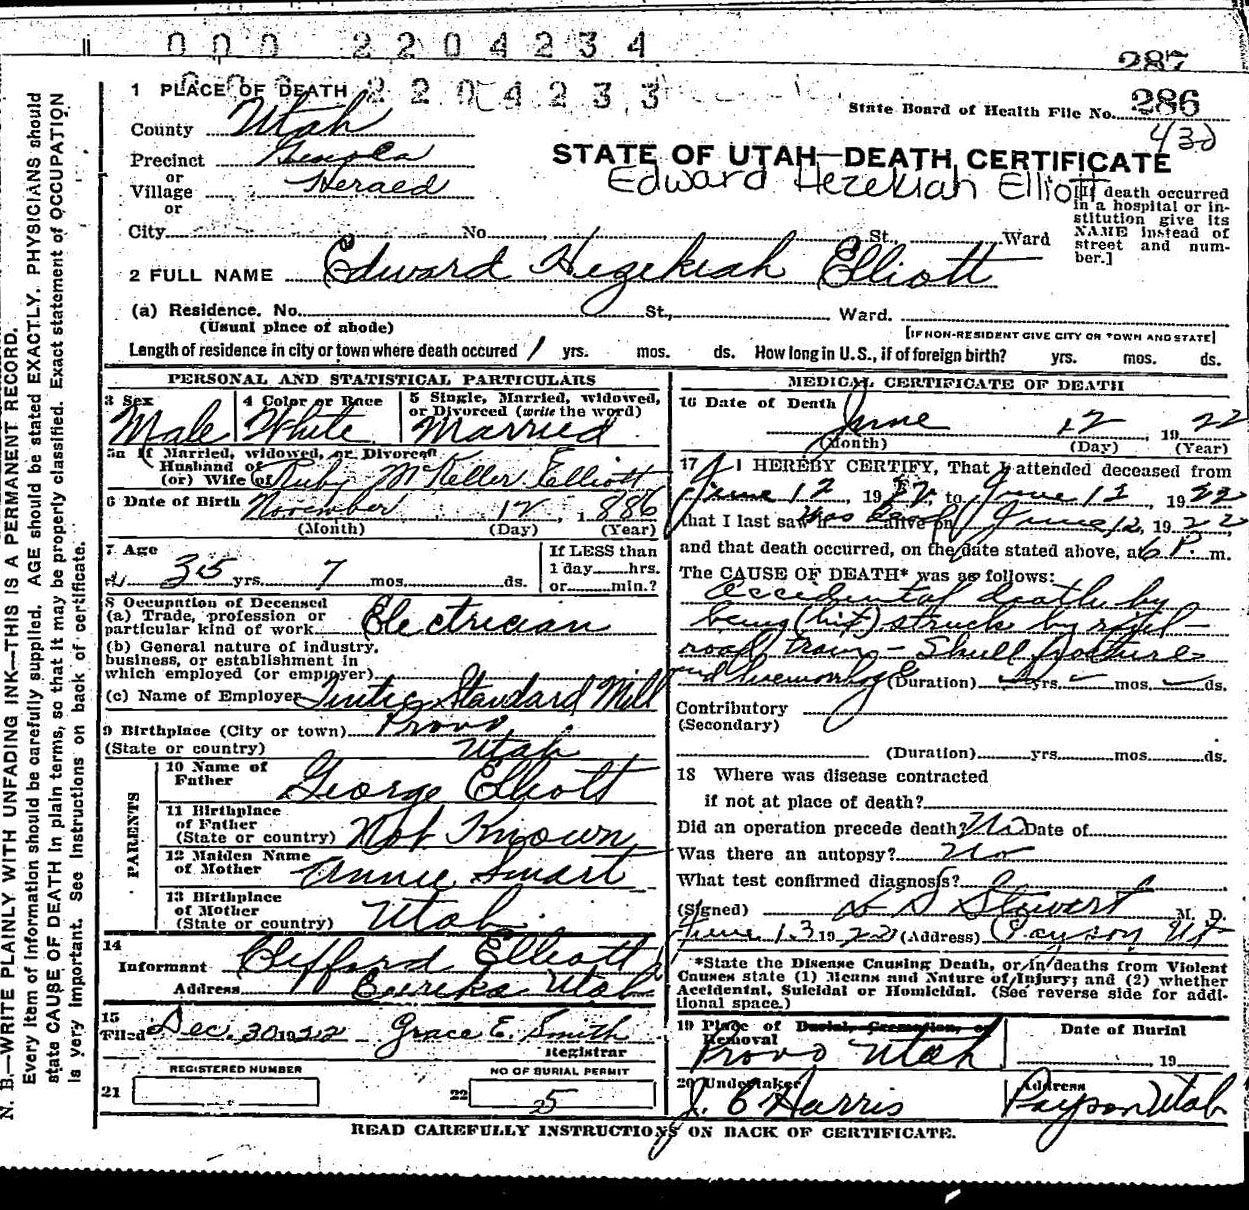 000 2204234
287
000 2204233
1 PLACE OF DEATH
State Board of Health File No. 286
County Utah
430
Precinct Genola
STATE OF UTAH—DEATH CERTIFICATE
or
Edward Hezekiah Elliott
Village Herald
or
[If death occurred
in a hospital or in-
stitution give its
NAME instead of
street and num-
ber.]
City No. St., Ward
2 FULL NAME Edward Hezekiah Elliott
(a) Residence. No. St., Ward.
(Usual place of abode)
[IF NON-RESIDENT GIVE CITY OR TOWN AND STATE]
Length of residence in city or town where death occured 1 yrs. mos. ds. How long in U.S., if of foreign birth? yrs. mos. ds.
PERSONAL AND STATISTICAL PARTICULARS
3 Sex Male
4 Color or Race White
5 Single, Married, widowed,
or Divorced (write the word)
Married
5a If Married, widowed, or Divorced
Husband of
(or) Wife of Ruby McKeller Elliott
6 Date of Birth November 12, 1886
(Month) (Day) (Year)
7 Age
35 yrs. 7 mos. ds.
If LESS than
1 day hrs.
or min.?
8 Occupation of Deceased
(a) Trade, profession or
particular kind of work Electrician
(b) General nature of industry,
business, or establishment in
which employed (or employer)
(c) Name of Employer Tintic Standard Mill
9 Birthplace (City or town) Provo
(State or country) Utah
PARENTS
10 Name of
Father George Elliott
11 Birthplace
of Father
(State or country) Not Known
12 Maiden Name
of Mother Annie Smart
13 Birthplace
of Mother
(State or country) Utah.
14
Informant Clifford Elliott
Address Eureka Utah
15
Filed Dec. 30 1922 Grace E. Smith
Registrar
REGISTERED NUMBER
21
NO OF BURIAL PERMIT
22 5
MEDICAL CERTIFICATE OF DEATH
16 Date of Death June 12, 1922
(Month) (Day) (Year)
17 I HEREBY CERTIFY, That I attended deceased from
June 12, 1922, to June 12, 1922
that I last saw h alive on June 12, 1922
and that death occurred, on the date stated above, at 6 P. m.
The CAUSE OF DEATH* was as follows:
Accidental death by
being (hit) struck by rail-
road train - Skull fracture
and hemorrhage (Duration) yrs. mos. ds.
Contributory
(Secondary)
(Duration) yrs. mos. ds.
18 Where was disease contracted
if not at place of death?
Did an operation precede death? No Date of
Was there an autopsy? No
What test confirmed diagnosis?
(Signed) Stewart M. D.
June 13 1922 (Address) Payson Ut
*State the Disease Causing Death, or in deaths from Violent
Causes state (1) Means and Nature of Injury; and (2) whether
Accidental, Suicidal or Homicidal. (See reverse side for addi-
tional space.)
19 Place of Burial, Cremation, or
Removal
Provo Utah
Date of Burial
19
20 Undertaker
J. C Harris
Address
Payson Utah
READ CAREFULLY INSTRUCTIONS ON BACK OF CERTIFICATE.
N. B.—WRITE PLAINLY WITH UNFADING INK—THIS IS A PERMANENT RECORD.
Every item of information should be carefully supplied. AGE should be stated EXACTLY. PHYSICIANS should
state CAUSE OF DEATH in plain terms, so that it may be properly classified. Exact statement of OCCUPATION
is very important. See Instructions on back of certificate.